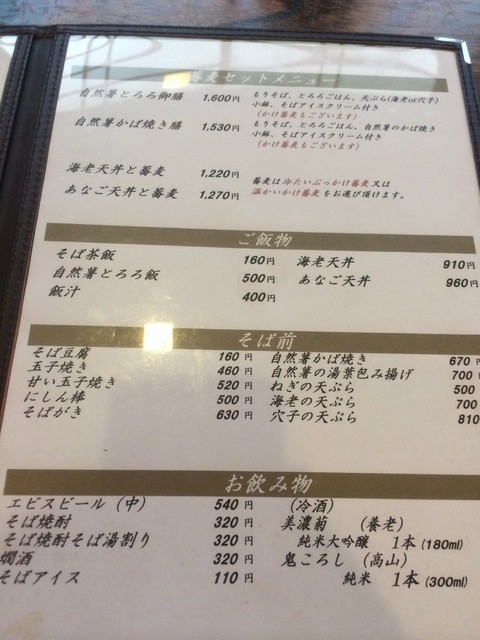 蕎麦セットメニュー
自然薯とろろ御膳 1,600円 もりそば、とろろごはん、天ぷら(海老or穴子)
小鉢、そばアイスクリーム付き
(かけ蕎麦もございます)
自然薯かば焼き膳 1,530円 もりそば、とろろごはん、自然薯のかば焼き
小鉢、そばアイスクリーム付き
(かけ蕎麦もございます)
海老天丼と蕎麦 1,220円 蕎麦は冷たいぶっかけ蕎麦又は
あなご天丼と蕎麦 1,270円 温かいかけ蕎麦をお選び頂けます。
ご飯物
そば茶飯 160円 海老天丼 910円
自然薯とろろ飯 500円 あなご天丼 960円
飯汁 400円
そば前
そば豆腐 160円 自然薯かば焼き 670円
玉子焼き 460円 自然薯の湯葉包み揚げ 700
甘い玉子焼き 520円 ねぎの天ぷら 500
にしん棒 500円 海老の天ぷら 700
そばがき 630円 穴子の天ぷら 810
お飲み物
エビスビール(中) 540円 (冷酒)
そば焼酎 320円 美濃菊 (養老)
そば焼酎そば湯割り 320円 純米大吟醸 1本(180ml)
燗酒 320円 鬼ころし(高山)
そばアイス 110円 純米 1本(300ml)